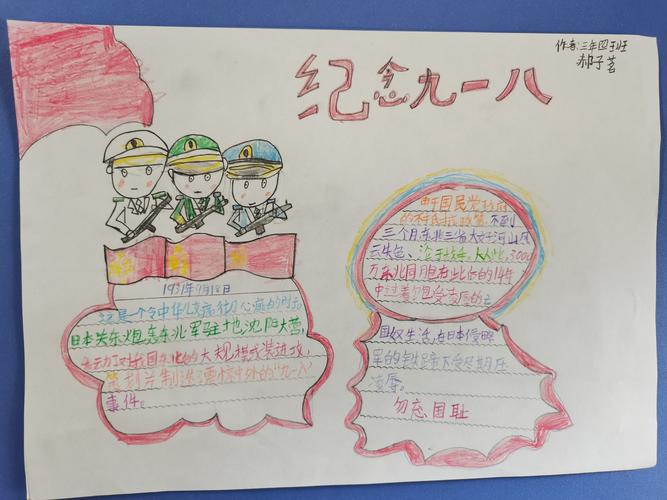 作者:三年四班
郝子茗
纪念九一八
1931年9月18日
这是一个令中华儿痛彻心扉的时刻
日本关东炮轰东北军驻地沈阳大营,
去动了对我国东北的大规模武装进攻,
策划并制造了震惊中外的"九一八"
事件。
由于国民党政府
的不抵抗政策,不到
三个月,东北三省大好河山风
云失色、沦于敌手。从此,3000
万东北同胞在此后的14年
中过着饱受凌辱的亡
国奴生活,在日本侵略
军的铁蹄下受尽欺压
凌辱。
勿忘国耻